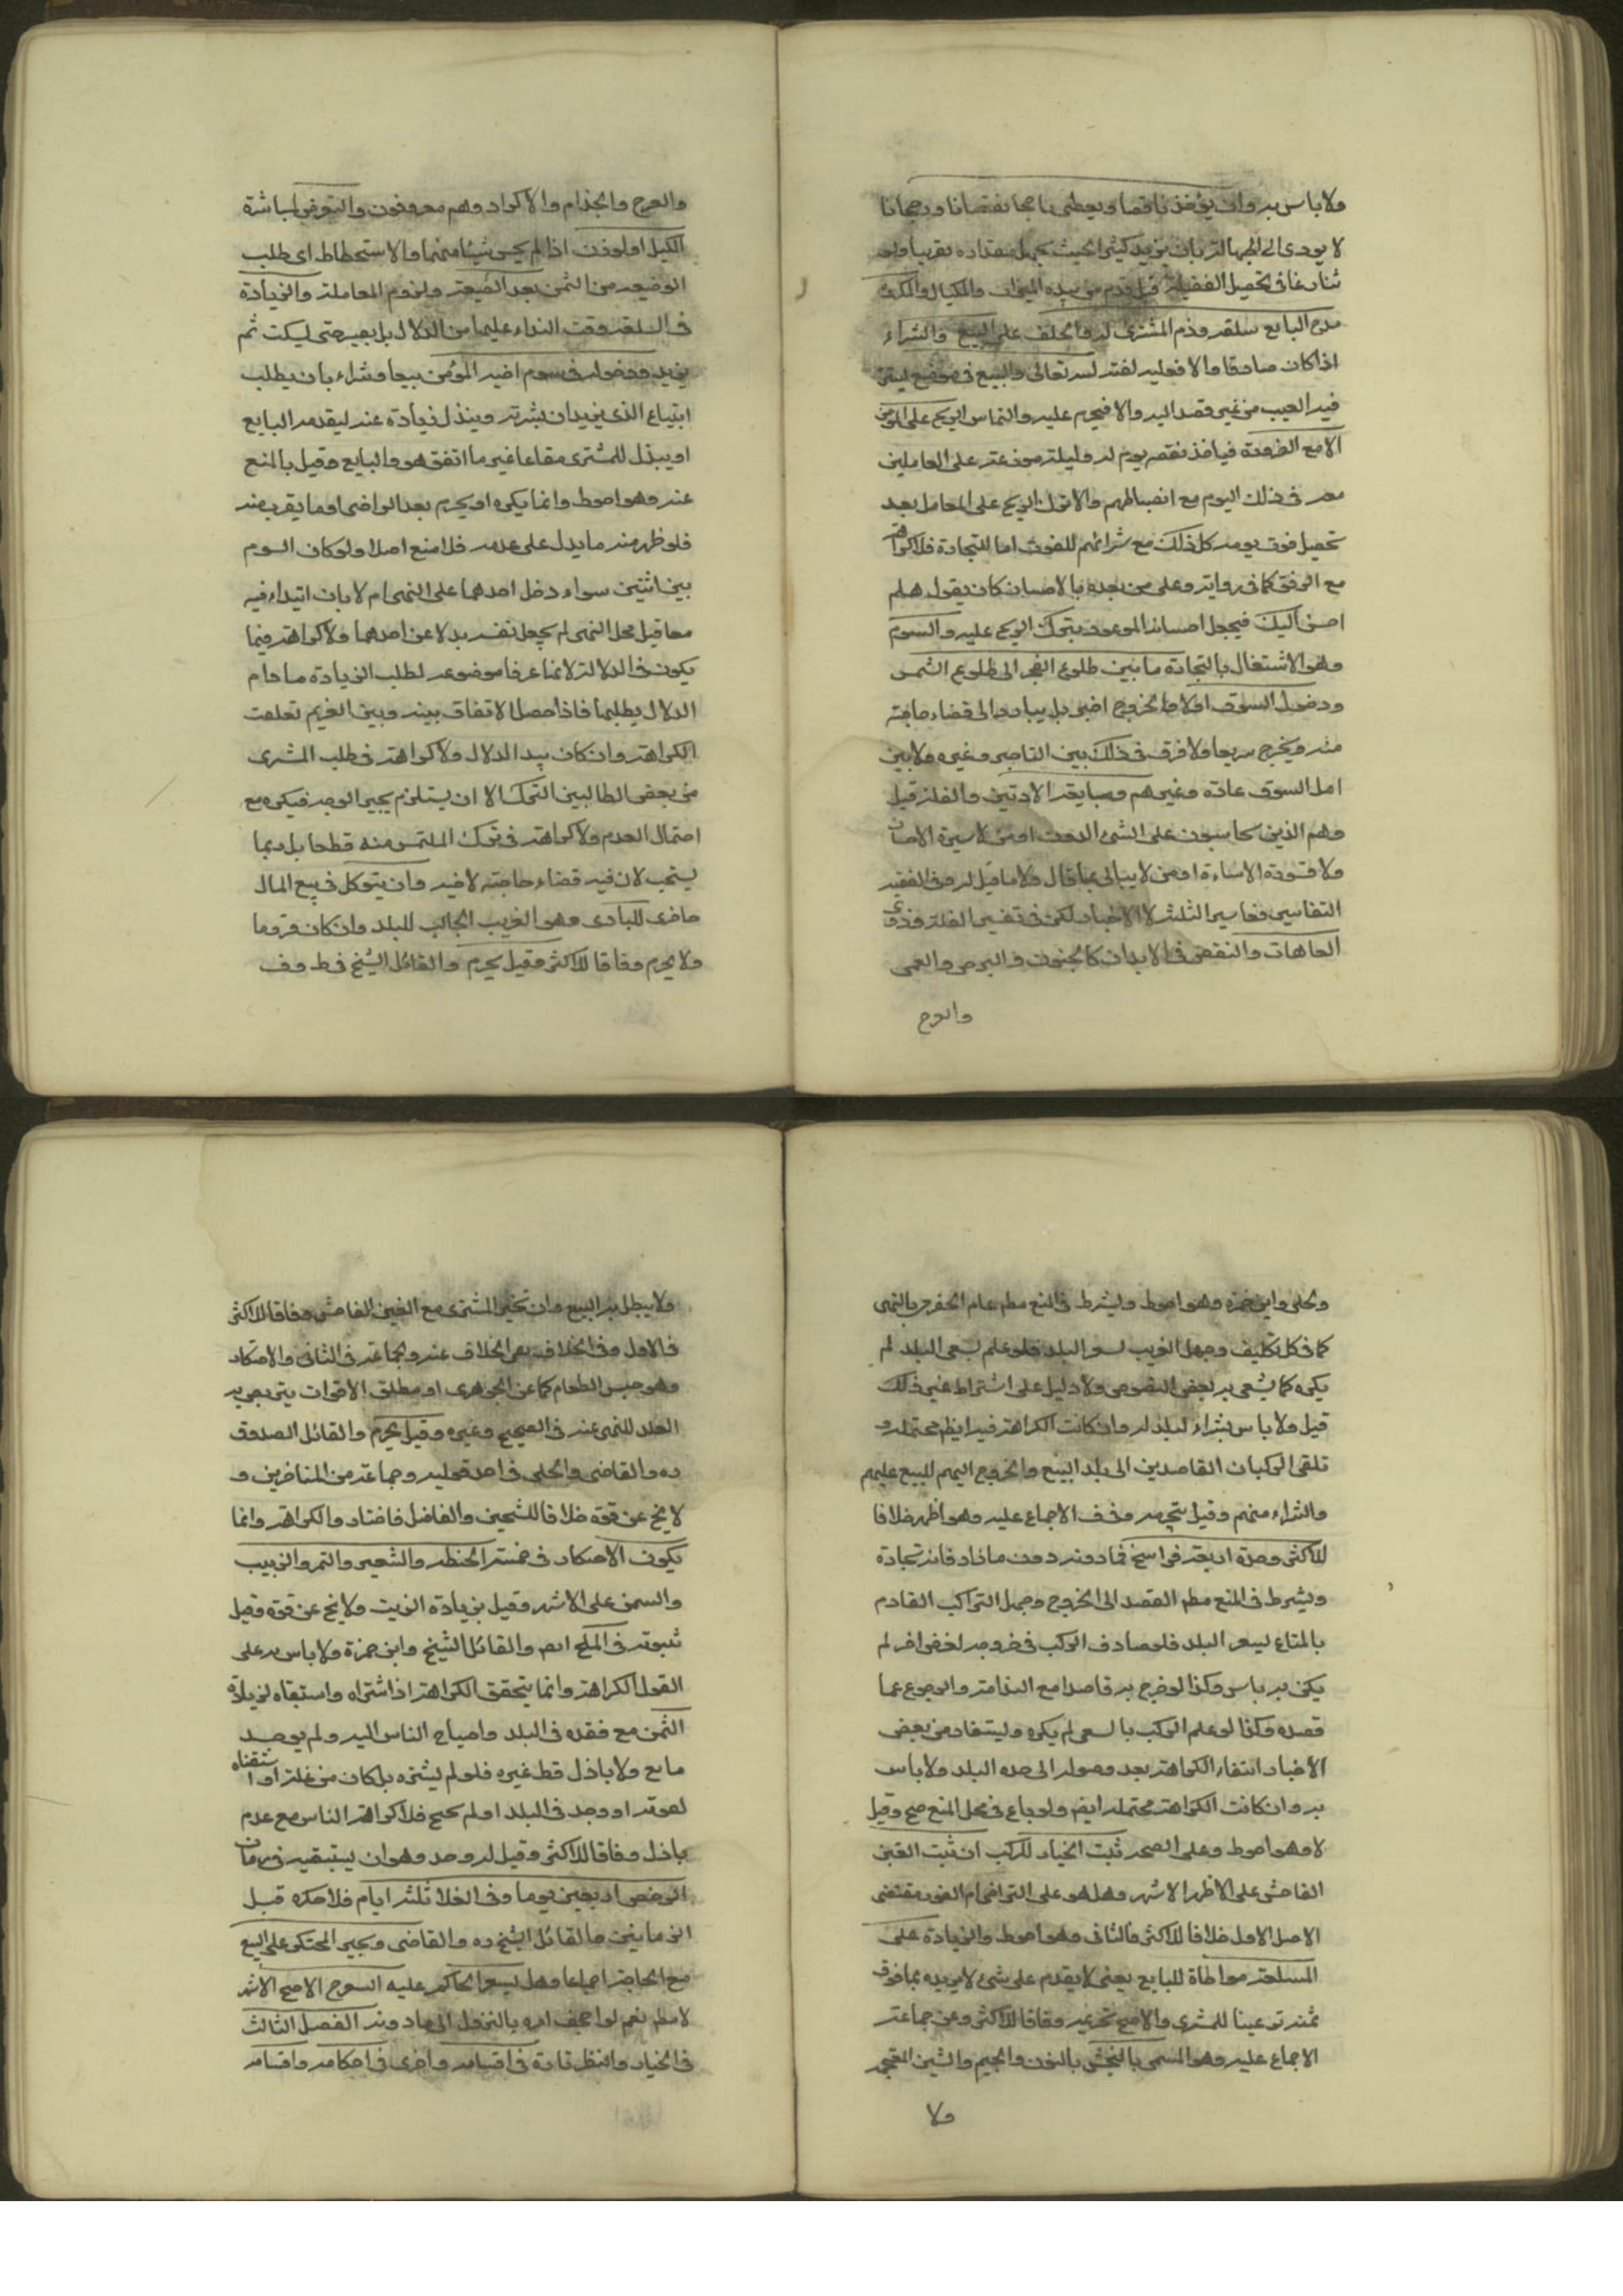 ولا باس به وان يؤخذ ناقصا ويعطى راجحا نقصانا ورجحانا
لا يودى الى الجهالة بان يزيد كثيرا بحيث يجهل مقداره تقريبا ولو
تنازعا فى تحصيل الفضيلة قيل قدم من بيده الميزان والمكيال والمكروه
مدح البايع سلعته وذم المشترى لها والحلف على البيع والشراء
اذا كان صادقا والا فعليه لعنة الله تعالى والبيع فى موضع يستتر
فيه العيب من غير قصد اليه والا فيحرم عليه والتماس الربح على المؤمن
الا مع الضرورة فياخذ نفقة يوم له وليلته موزعة على المعاملين
معه فى ذلك اليوم مع انضباطهم والا ترك الربح على المعامل بعد
تحصيل قوت يومه كل ذلك مع شرائهم للقوت اما للتجارة فلا كراهة
مع الرفق كما فى رواية وعلى من يعده بالاحسان كان يقول هلم
احسن اليك فيجعل احسانه الموعود بترك الربح عليه والسوم
وهو الاشتغال بالتجارة ما بين طلوع الفجر الى طلوع الشمس
ودخول السوق اولا والخروج اخيرا بل يبادر الى قضاء حاجته
منه ويخرج سريعا ولا فرق فى ذلك بين التاجر وغيره ولا بين
اهل السوق عادة وغيرهم ومبايعة الادنين والسفلة قيل
وهم الذين يحاسبون على الشئ الدون او من لا يسره الاحسان
ولا تسوءه الاساءة او من لا يبالى بما قال ولا ما قيل له وفى الفقيه
التفاسير الثلثة لا الاخبار لكن فى تفسير السفلة وذوى
العاهات والنقص فى الابدان كالجنون والبرص والعمى
والعرج
والعرج والجذام والاكراد وهم معروفون والتعرض لمباشرة
الكيل او الوزن اذا لم يحسن شيئا منهما والاستحطاط اى طلب
الوضيعة من الثمن بعد الصيغة ولزوم المعاملة والزيادة
فى السلعة وقت النداء عليها من الدلال بل يصبر حتى يسكت ثم
يزيد ودخوله فى سوم اخيه المؤمن بيعا وشراء بان يطلب
ابتياع الذى يريد ان يشتريه ويبذل زيادة عنه ليقدمه البايع
او يبذل للمشترى متاعا غير ما اتفق هو والبايع وقيل بالمنع
عنه وهو احوط وانما يكره او يحرم بعد التراضى او ما يقرب منه
فلو ظهر منه ما يدل على عدمه فلا منع اصلا ولو كان السوم
بين اثنين سواء دخل احدهما على النهى ام لا بان ابتداء فيه
معا قيل محل النهى لم يجعل نفسه بدلا عن احدهما ولا كراهة فيما
يكون فى الدلالة لانها عرفا موضوعة لطلب الزيادة ما دام
الدلال يطلبها فاذا حصل الاتفاق بينه وبين الغريم تعلقت
الكراهة وان كان بيد الدلال ولا كراهة فى طلب المشترى
من بعض الطالبين الترك الا ان يستلزم بجبر الوجه فيكره مع
احتمال العدم ولا كراهة فى ترك الملتمس منه قطعا بل ربما
يستحب لان فيه قضاء حاجته لاخيه وان يتوكل فى بيع المال
حاضر للبادى وهو الغريب الجالب للبلد وان كان قرويا
ولا يحرم وفاقا للاكثر وقيل يحرم والقائل الشيخ فى ط و ف
وحلى وابن حمزة وهو احوط ويشترط فى المنع مط علم الحضرى بالنهى
كما فى كل تكليف وجهل الغريب لسعر البلد فلو علم بسعر البلد لم
يكره كما يشعر به بعض النصوص ولا دليل على اشتراط غير ذلك
قيل ولا باس بشراء البلدى له وان كانت الكراهة فيه ايضا محتملة و
تلقى الركبان القاصدين الى بلد البيع والخروج اليهم للبيع عليهم
والشراء منهم وقيل بتحريمه وفى ف الاجماع عليه وهو اظهر خلافا
للاكثر وحده اربعة فراسخ فما دونه دون ما زاد فانه تجارة
ويشترط فى المنع مط القصد الى الخروج وجهل الراكب القادم
بالمتاع لسعر البلد فلو صادف الركب فى خروجه لغرض اخر لم
يكن به باس وكذا لو خرج به قاصدا مع الندامة والرجوع عما
قصده وكذا لو علم الركب بالسعر لم يكره ويستفاد من بعض
الاخبار انتفاء الكراهة بعد وصوله الى حده البلد ولا باس
به وان كانت الكراهة محتملة ايضا ولو باع فى محل المنع صح وقيل
لا وهو احوط وعلى الصحة ثبت الخيار للركب ان ثبت الغبن
الفاحش على الاظهر الاشهر وهل هو على التراخى ام الفور مقتضى
الاصل الاول خلافا للاكثر فالثانى وهو احوط والزيادة على
السلعة مواطاة للبايع يعنى لا يقدم على شئ لا يريده بما فوق
ثمنه ترغيبا للمشترى والاصح تحريمه وفاقا للاكثر وعن جماعة
الاجماع عليه وهو المسمى بالنجش بالنون والجيم والشين المعجمة
ولا
ولا يبطل به البيع وان تخير المشترى مع الغبن الفاحش وفاقا للاكثر
فى الاول وفى الخلاف نفى الخلاف عنه ولجماعة فى الثانى والاحتكار
وهو حبس الطعام كما عن الجوهرى او مطلق الاقوات يتربص به
الغلاء للنهى عنه فى الصحيح وغيره وقيل يحرم والقائل الصدوق
ره والقاضى والحلى فى احد قوليه وجماعة من المتاخرين و
لا يخ عن قوة خلافا للشيخين والفاضل فاختاروا الكراهة وانما
يكون الاحتكار فى خمسة الحنطة والشعير والتمر والزبيب
والسمن على الاشهر وقيل بزيادة الزيت ولا يخ عن قوة وقيل
ثبوته فى الملح ايضا والقائل الشيخ وابن حمزة ولا باس به على
القول الكراهة وانما يتحقق الكراهة اذا اشتراه واستبقاه لزيادة
الثمن مع فقده فى البلد واحتياج الناس اليه ولم يوجد
بايع ولا باذل قط غيره فلو لم يشتره بل كان من غلته او استبقاه
لقوته او وجد فى البلد او لم يحتج فلا كراهة الناس مع عدم
باذل وفاقا للاكثر وقيل له وحد وهو ان يستبقيه فى زمان
الرخص اربعين يوما وفى الغلا ثلثة ايام فلا حكره قبل
الزمانين والقائل الشيخ ره والقاضى ويجبر المحتكر على البيع
مع الحاجة اجماعا وهل يسعر الحاكم عليه السعر ج الاصح الاشهر
لا مط نعم لو اجحف امره بالنزول الى ما دونه الفصل الثالث
فى الخيار والنظر تارة فى اقسامه واخرى فى احكامه واقسامه